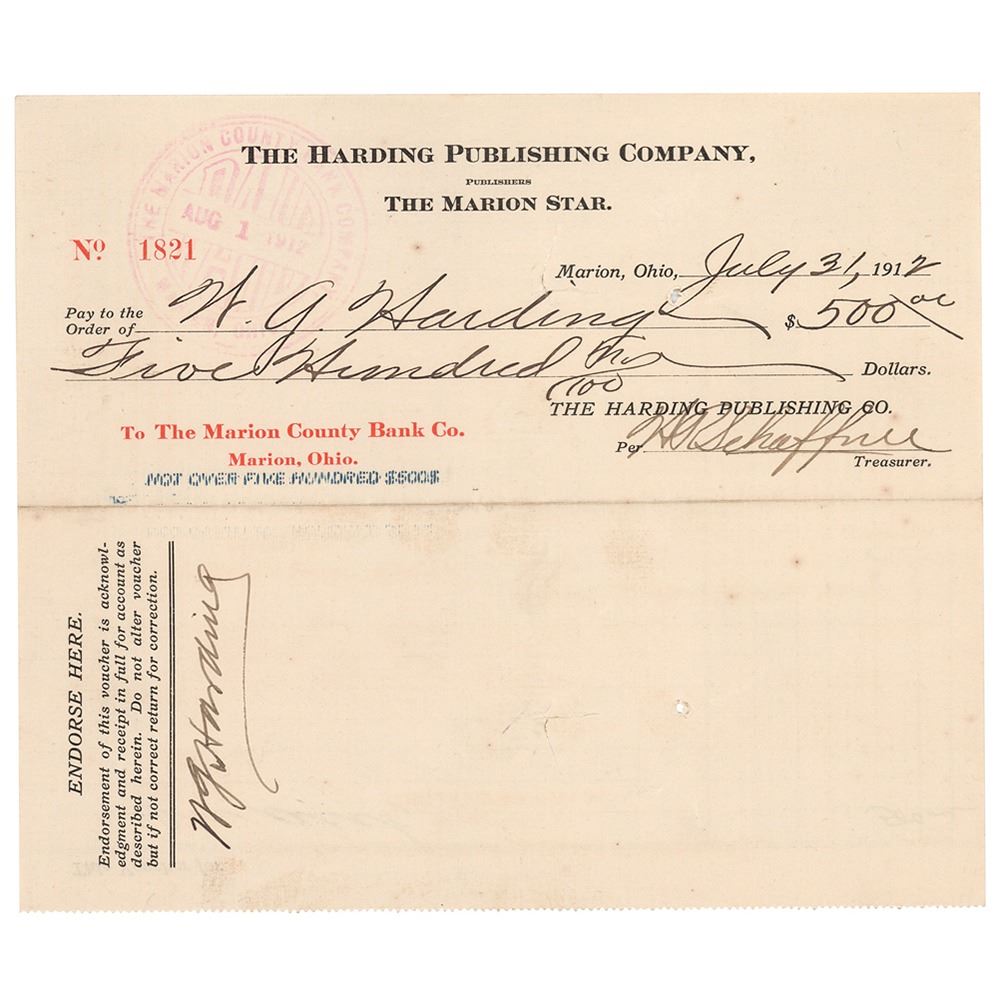 THE HARDING PUBLISHING COMPANY,
PUBLISHERS
THE MARION STAR.
THE MARION COUNTY BANK COMPANY
AUG 1 1912
Nº 1821
Marion, Ohio, July 31, 1912
Pay to the
Order of W. G. Harding $ 500 00
Five Hundred no/100 Dollars.
THE HARDING PUBLISHING CO.
To The Marion County Bank Co.
Marion, Ohio.
Per Schaffner
Treasurer.
NOT OVER FIVE HUNDRED $500$
ENDORSE HERE.
Endorsement of this voucher is acknowl-
edgment and receipt in full for account as
described herein. Do not alter voucher
but if not correct return for correction.
W G Harding